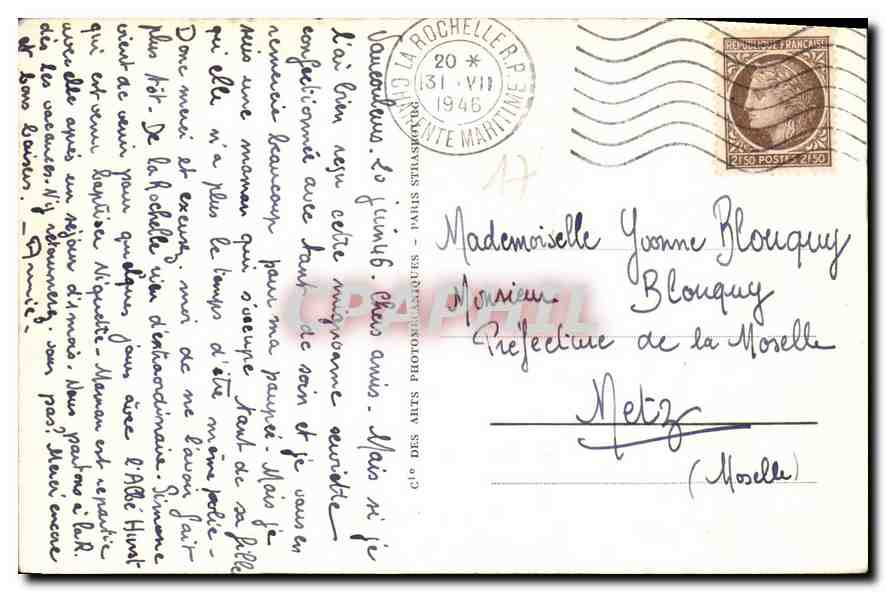 Vaucouleurs. 20 juin 46. Chers amis. Mais si je
l'ai bien reçu cette mignonne
confectionnée avec tant de soin et je vous en
remercie beaucoup pour ma poupée. Mais je
suis une maman qui s'occupe tant de sa fille
qu'elle n'a plus le temps d'être même polie -
Donc merci et excusez-moi de ne l'avoir fait
plus tôt. De la Rochelle rien d'extraordinaire. Simone
vient de venir pour quelques jours avec l'Abbé Hurst
qui est venu baptiser Niquette - Maman est repartie
avec elle après un séjour d'1 mois. Nous partons à la R.
dès les vacances. N'y retournerez-vous pas? Merci encore
et bons baisers. - Annie -
Cie DES ARTS PHOTOMÉCANIQUES - PARIS STRASBOURG
LA ROCHELLE R.P.
20 *
31 · VII
1946
CHARENTE MARITIME
17
REPUBLIQUE FRANÇAISE
2F50 POSTES 2F50
Mademoiselle Yvonne Blouquy
Monsieur Blouquy
Préfecture de la Moselle
Metz
(Moselle)
CPAPHIL